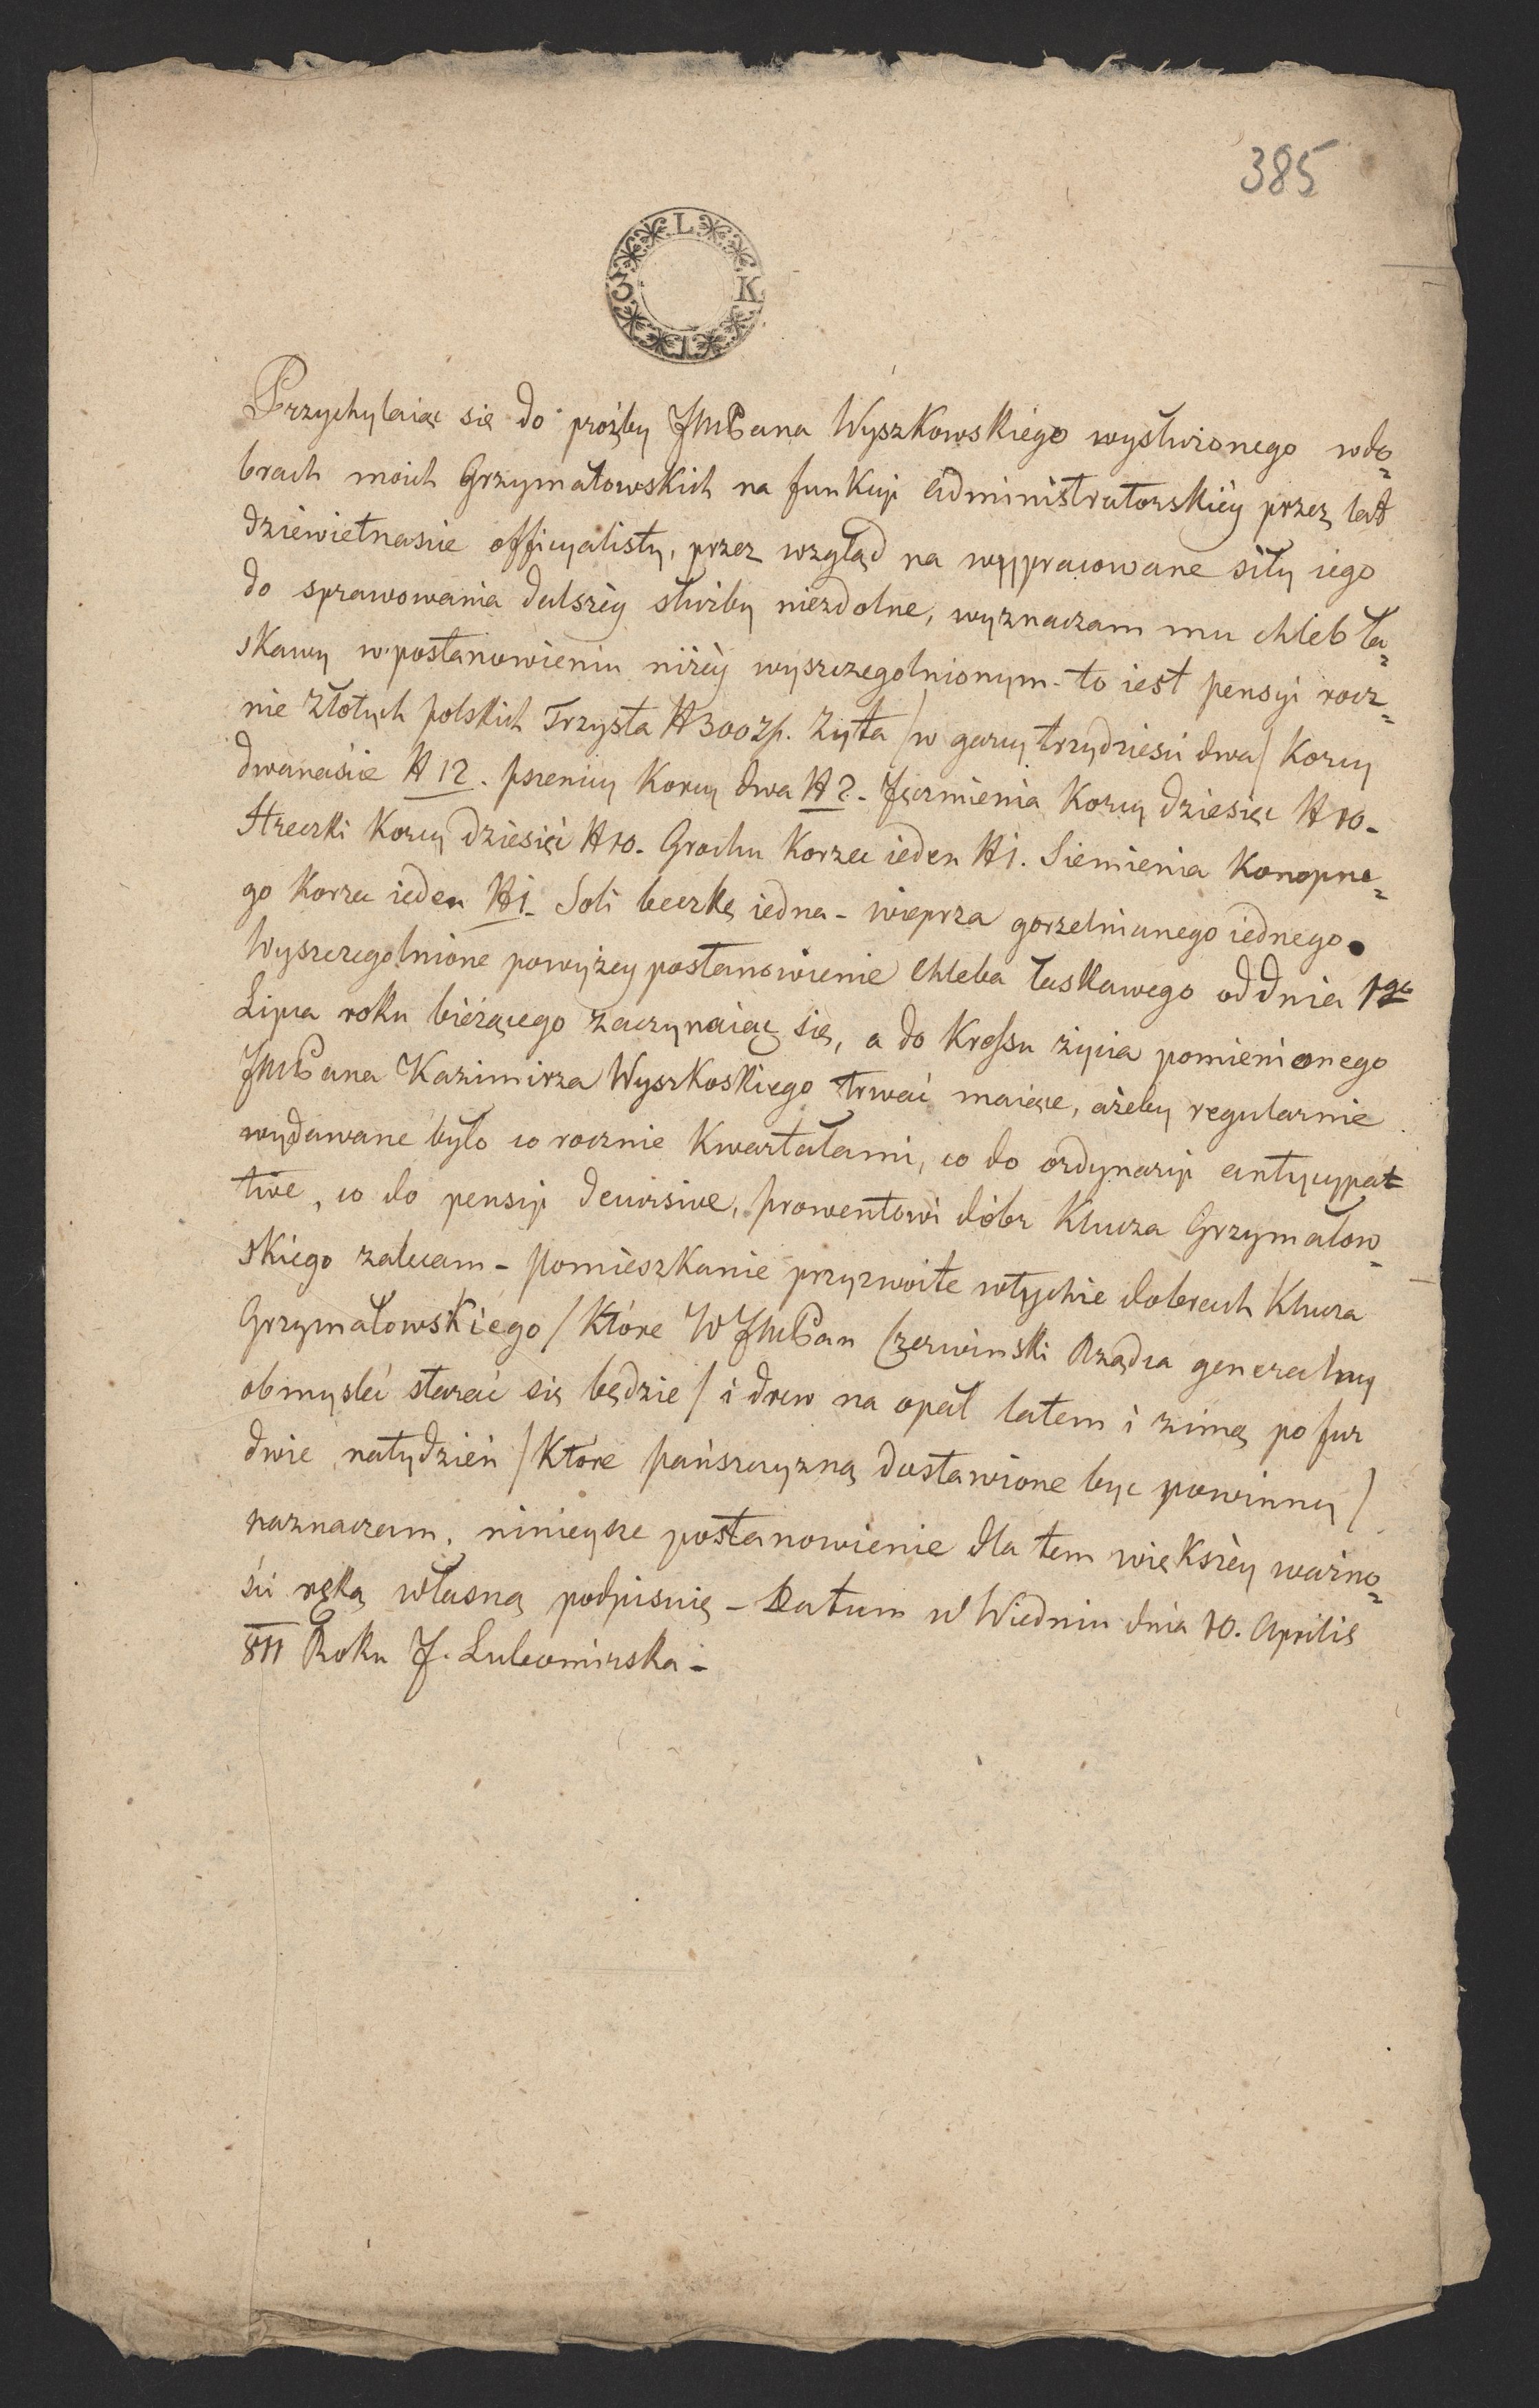 385
L
3 K
I
Przychylaiąc się do proźby JMPana Wyszkowskiego wysłużonego wdo=
brach moich Grzymałowskich na funkcyi Administratorskiey przez lat
dziewietnascie officyalisty, przez wzgląd na wypracowane siły iego
do sprawowania dalszey służby niezdolne, wyznaczam mu chleb ła=
skawy w postanowieniu niżey wyszczegolnionym - to iest pensyi rocz=
nie złotych polskich Trzysta N 300 zp. Zyta /w garcy trzydziesci dwa/ korcy
dwanaście N 12. pszenicy korcy dwa N 2. Jęczmienia korcy dziesięc N 10.
Hreczki korcy dziesięć N 10. Grochu korzec ieden N 1. Siemienia konopne=
go korzec ieden N 1. Soli beczkę iedna - wieprza gorzelnianego iednego.
Wyszczegolnione powyżey postanowienie Chleba łaskawego od dnia 1go
Lipca roku bieżącego zaczynaiąc się, a do kressu życia pomienionego
JMPana Kazimirza Wyszkoskiego trwać maiące, ażeby regularnie
wydawane było co rocznie kwartałami, co do ordynaryi antycypa=
tive, co do pensyi decursive, prowentowi dóbr Klucza Grzymałow=
skiego zalecam - pomieszkanie przyzwoite wtychże dobrach Klucza
Grzymałowskiego /które WJMPan Czerwinski Rządca generalny
obmyslić starać się będzie/ i drew na opał latem i zimą po fur
dwie natydzień /które pańszczyzną dostawione byc powinny/
naznaczam. ninieysze postanowienie dla tem większey ważno=
ści ręką własną podpisuię - Datum w Wiedniu dnia 10. Aprilis
811 Roku J. Lubomirska -